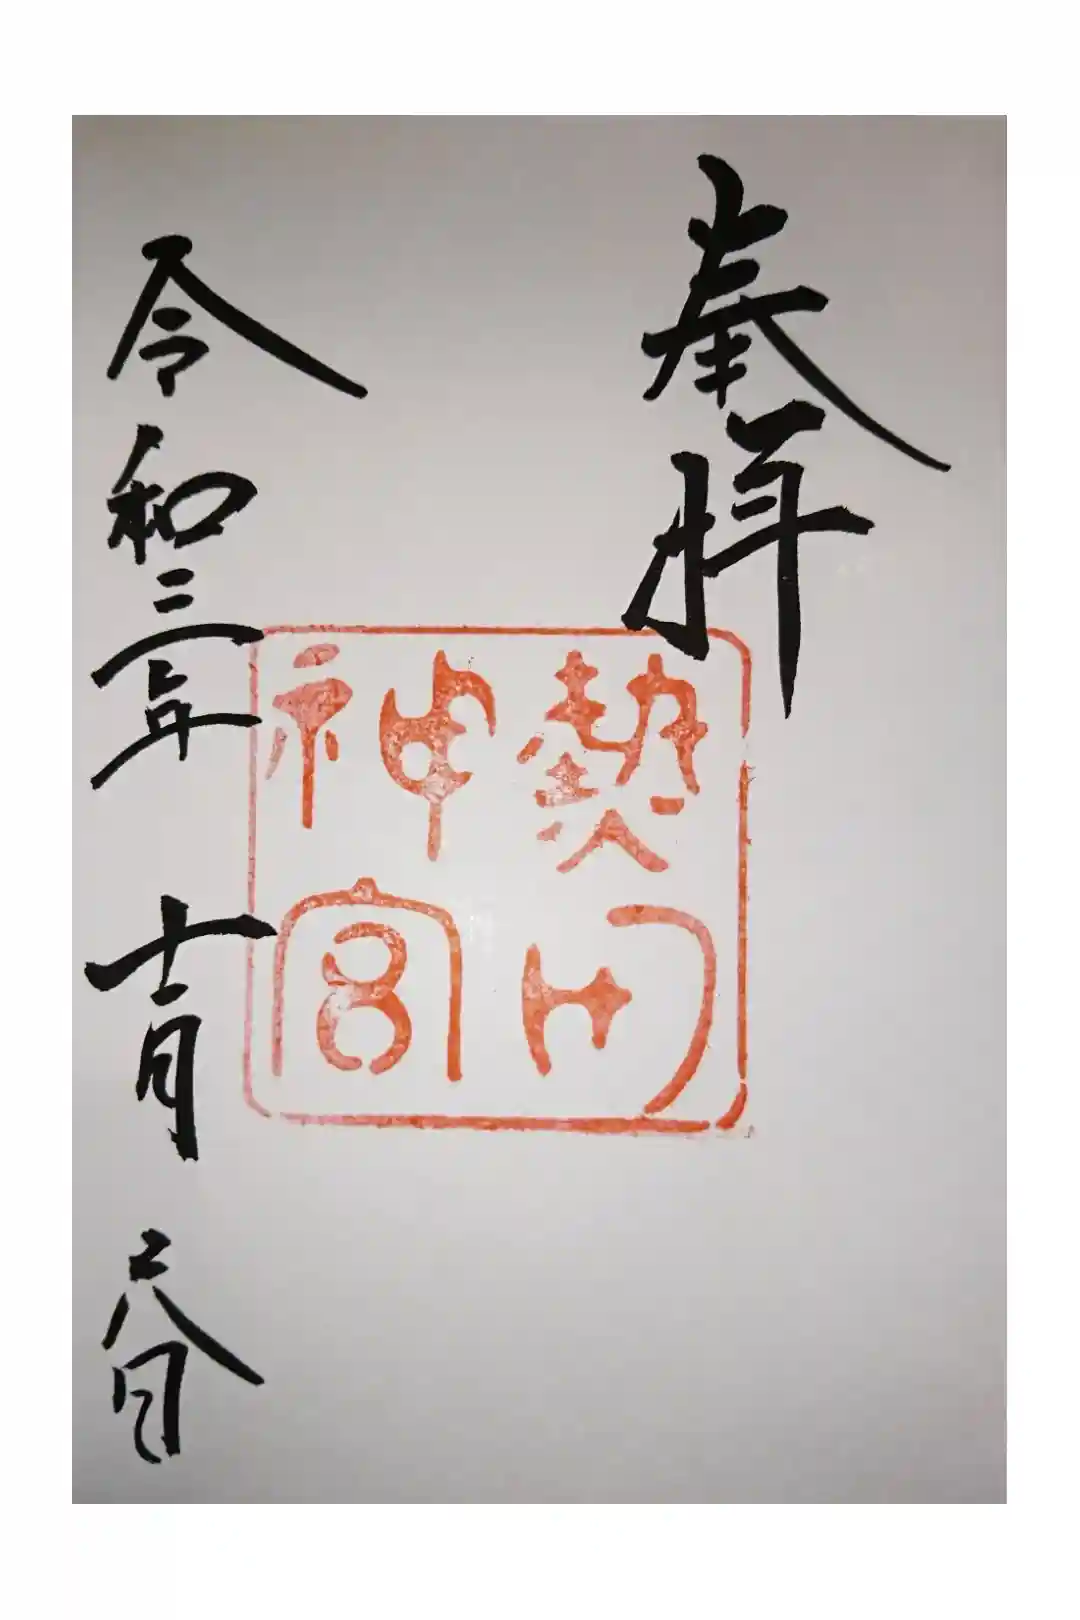 奉拝
熱田
神宮
令和三年 十一月 六日